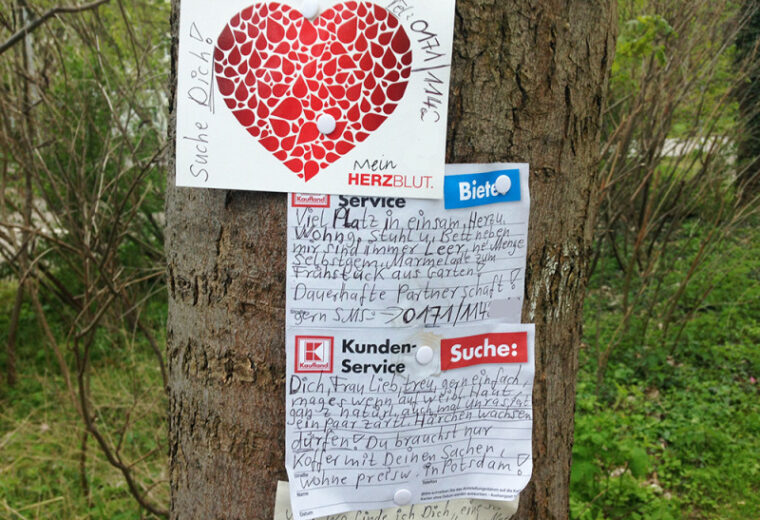 Suche Dich!
Tel: 0171/114
Mein
HERZBLUT.
Kaufland
Service
Biete
Viel Platz in einsam. Herz u.
Wohng. Stuhl u. Bett neben
mir sind immer Leer, ne Menge
Selbstgem. Marmelade zum
Frühstück aus Garten!
Dauerhafte Partnerschaft!
gern SMS: → 0171/114
Kaufland
Kunden-
Service
Suche:
Dich, Frau Lieb, treu, gern einfach,
mages wenn auf weibl. Haut
ganz natürl. auch mal unrasiert
ein paar zartl. Härchen wachsen
dürfen! Du brauchst nur
Koffer mit Deinen Sachen,
wohne preisw. in Potsdam!
Straße
Telefon
Name
Datum
finde ich Dich, eine